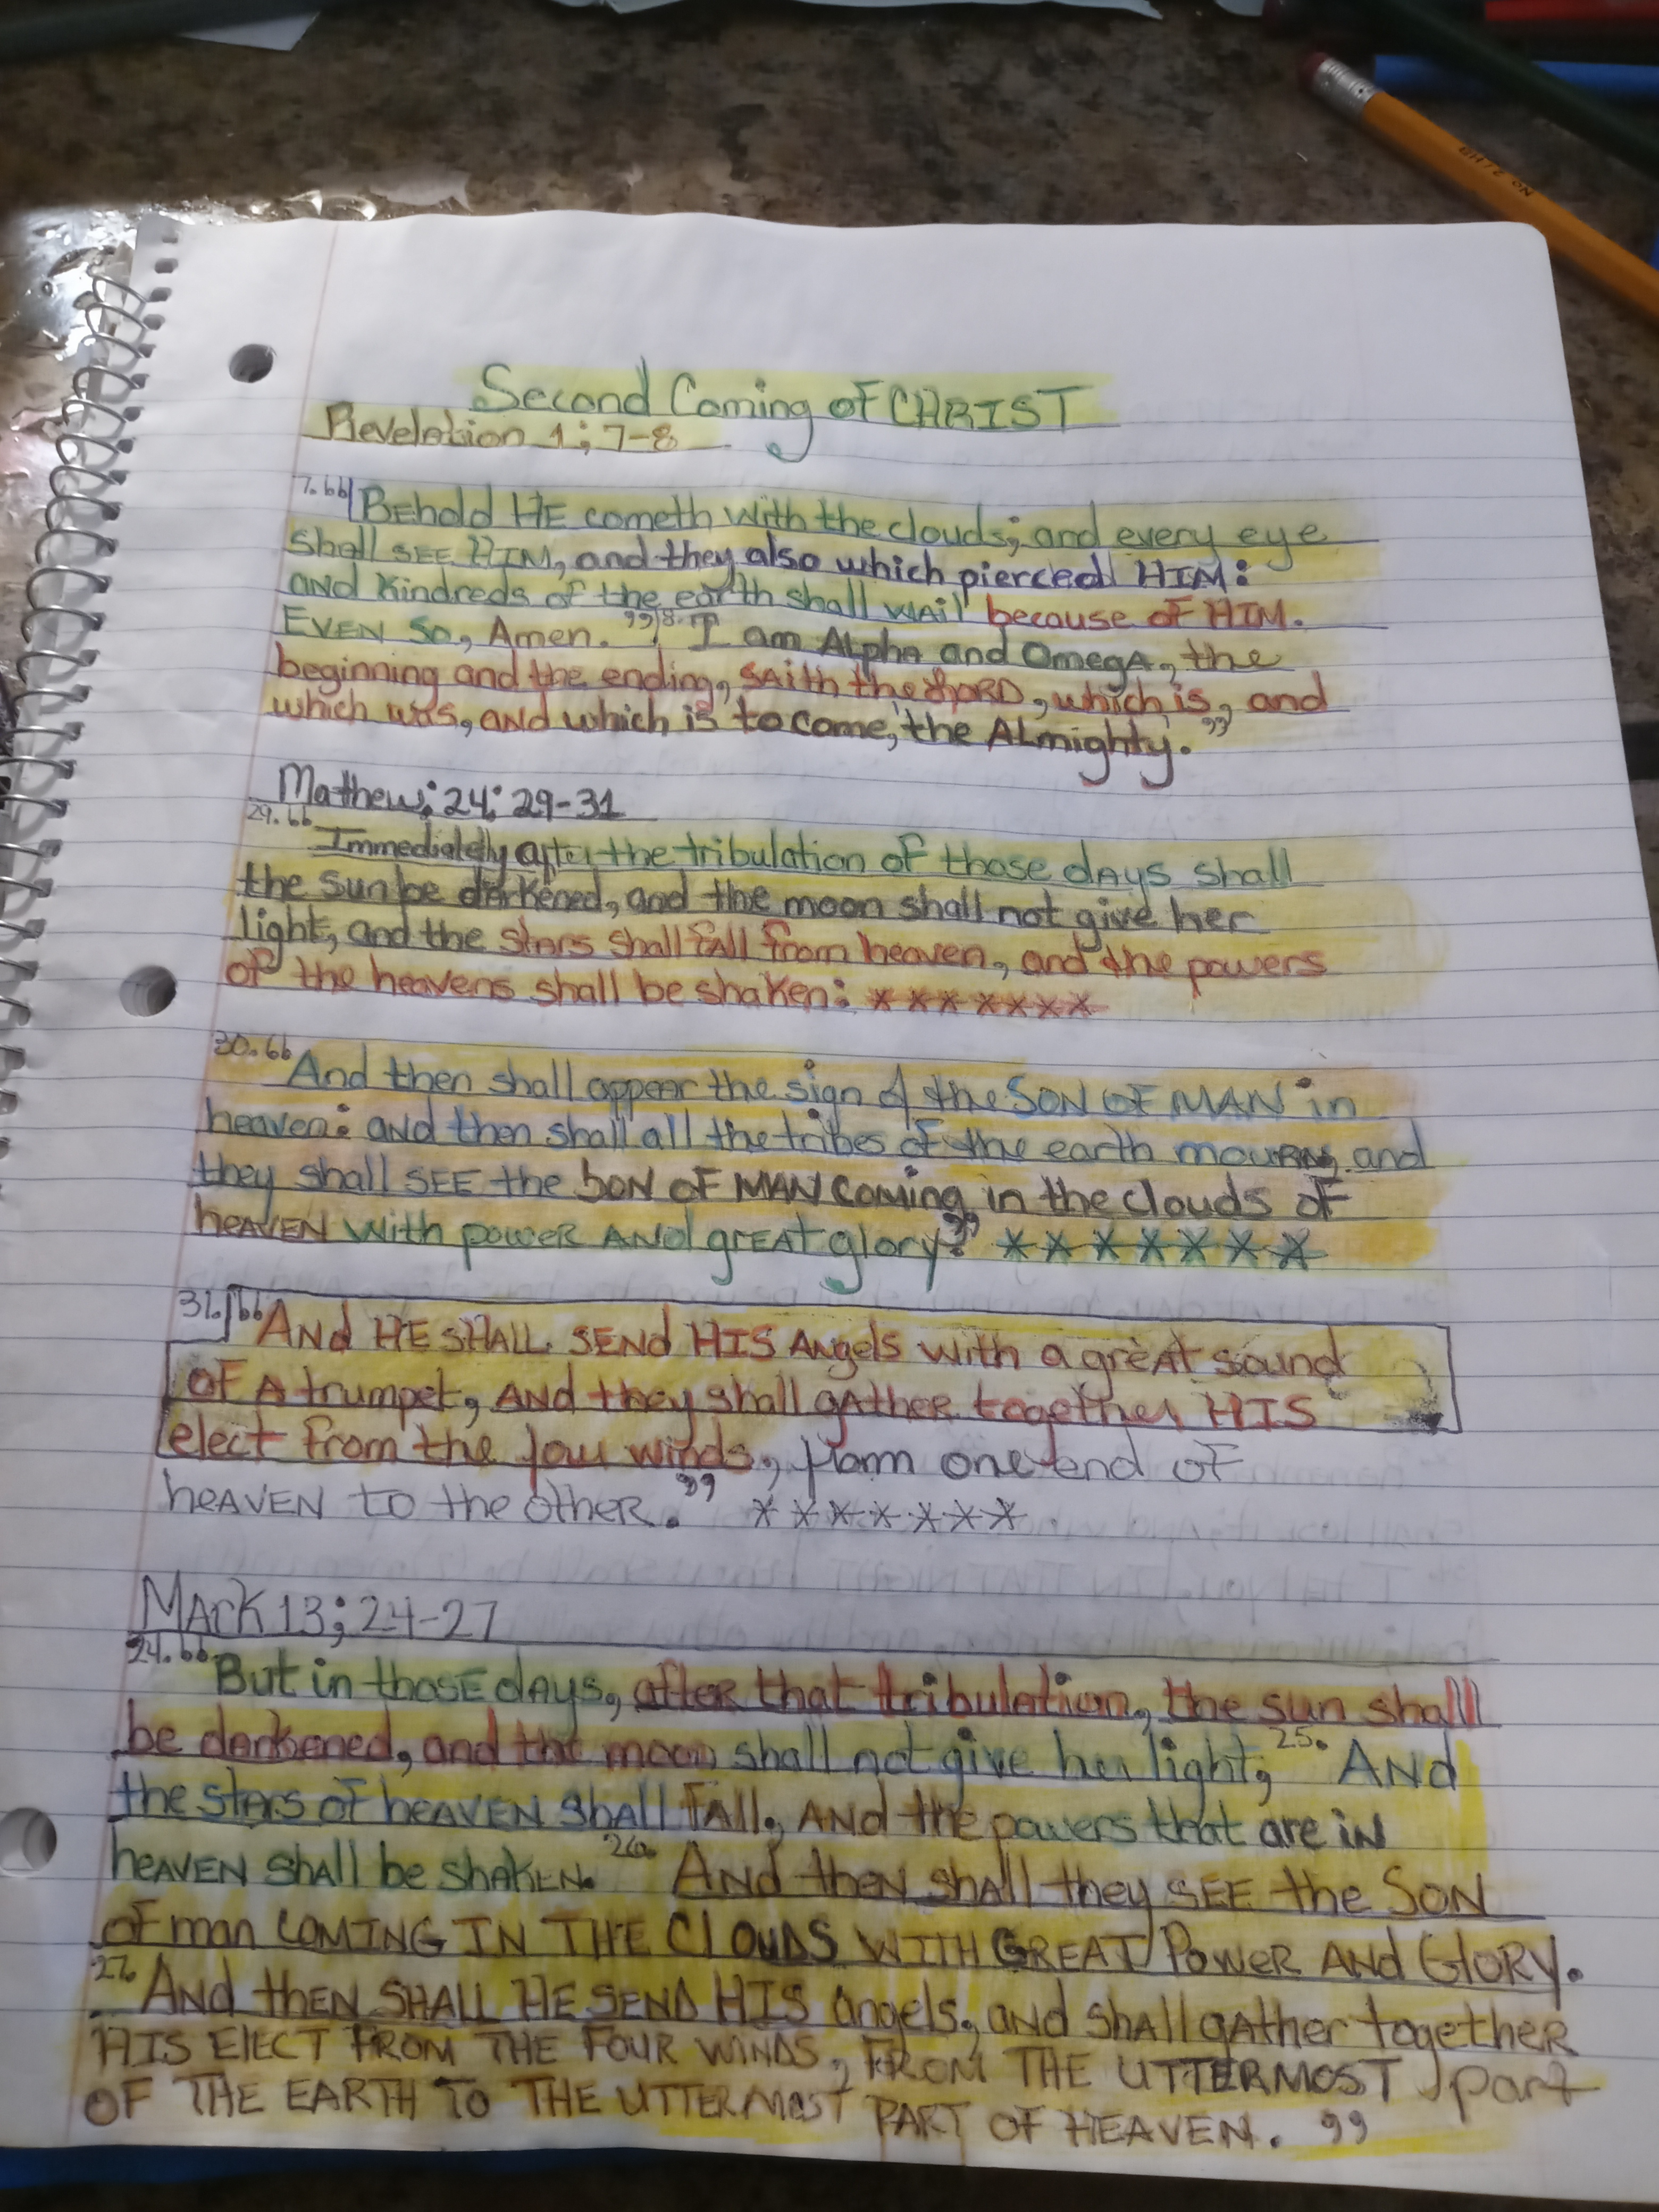 No 2/HB
Second Coming of CHRIST
Revelation 1; 7-8
7. "Behold HE cometh with the clouds; and every eye
shall SEE HIM, and they also which pierced HIM:
and kindreds of the earth shall wail because of HIM.
EVEN So, Amen." 8. I am Alpha and Omega, the
beginning and the ending, saith the LORD, which is, and
which was, and which is to come, the Almighty."
Mathew: 24: 29-31
29. "Immediately after the tribulation of those days shall
the sun be darkened, and the moon shall not give her
light, and the stars shall fall from heaven, and the powers
of the heavens shall be shaken: *******
30. "And then shall appear the sign of the SON OF MAN in
heaven: and then shall all the tribes of the earth mourn, and
they shall SEE the SON OF MAN coming in the clouds of
heAVEN with power AND greAT glory." *******
31. "AND HE SHALL SEND HIS Angels with a greAT sound
of A trumpet, AND they shall gATHER together HIS
elect from the four winds, from one end of
heAVEN to the other." *******
MACK 13; 24-27
24. "But in those days, after that tribulation, the sun shall
be darkened, and the moon shall not give her light, 25. AND
the stars of heAVEN shall FAll, AND the powers that are in
heAVEN shall be shaken. 26. And then shall they SEE the SON
of man COMING IN THE ClOUDS WITH GREAT Power AND GlORY.
27. And then SHALL HE SEND HIS angels, and shAll gather together
HIS ElECT FROM THE FOUR WINDS, FROM THE UTTERMOST part
OF THE EARTH TO THE UTTERMOST PART OF HEAVEN."